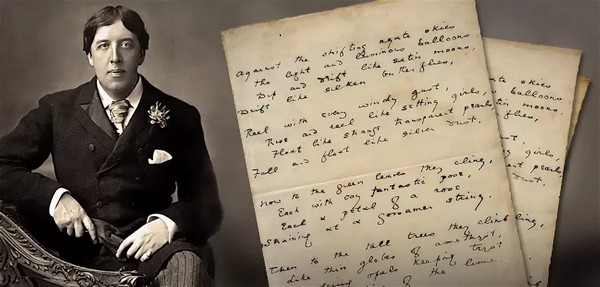 Against the shifting agate skies
the light and luminous balloons
Dip and drift like satin moons,
Drift like silken butterflies,
Reel with every windy gust,
Rise and reel like girls,
Float like strange transparent pearls
Fall and float like silver dust.
Now to the green leaves they cling,
Each with coy fantastic pose,
Each a petal of a rose
straining at a gossamer string.
Then to the tall trees they climb
Like thin globes of amethyst,
opals keeping
of the lime
skies
balloons
moons,
flies,
gust,
girls,
transparent pearls
dust.